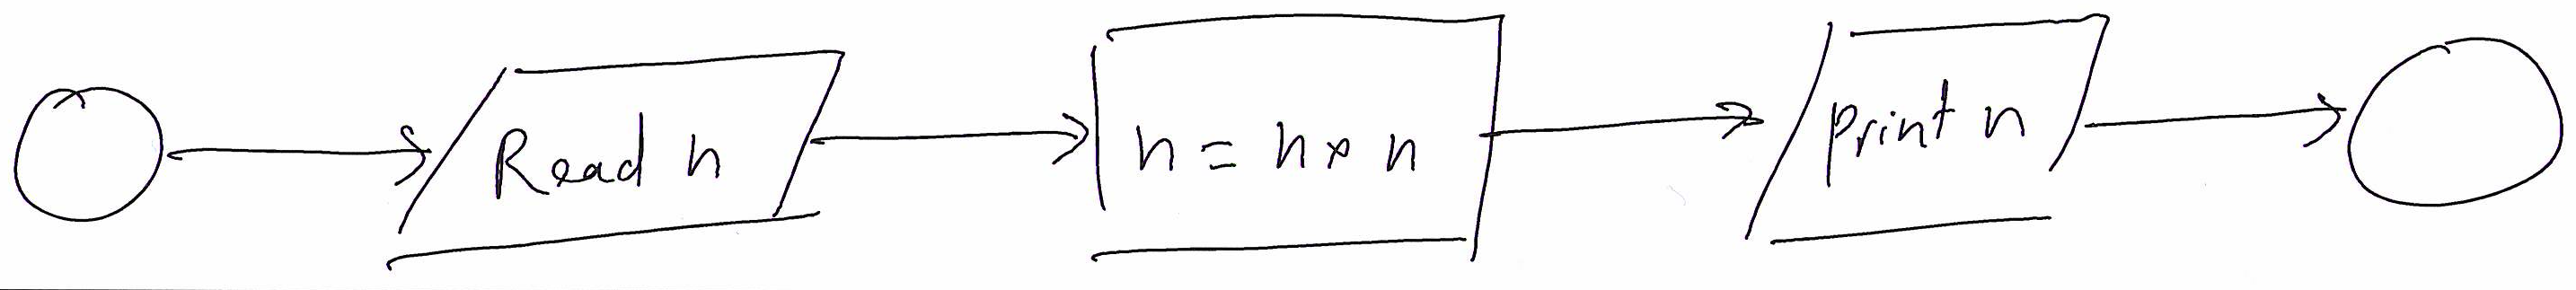 Read n
n = n × n
print n